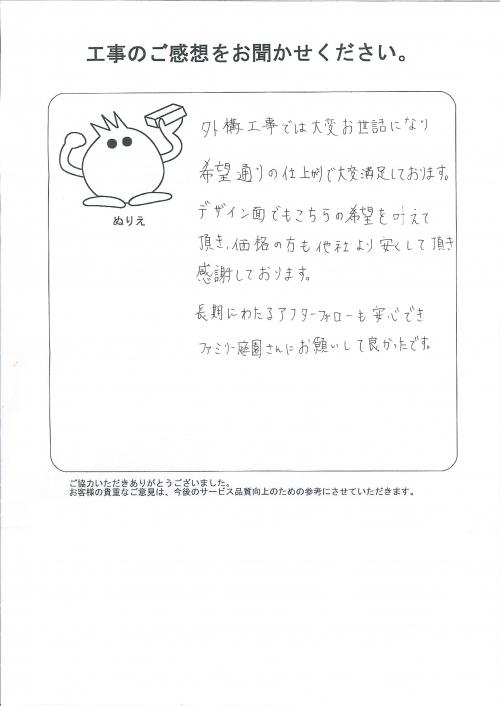 工事のご感想をお聞かせください。
ぬりえ
外構工事では大変お世話になり
希望通りの仕上がりで大変満足しております。
デザイン面でもこちらの希望を叶えて
頂き、価格の方も他社より安くして頂き
感謝しております。
長期にわたるアフターフォローも安心でき
ファミリー庭園さんにお願いして良かったです。
ご協力いただきありがとうございました。
お客様の貴重なご意見は、今後のサービス品質向上のための参考にさせていただきます。